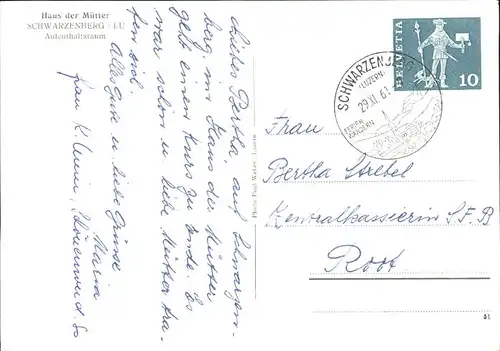 Haus der Mütter
SCHWARZENBERG / LU
Aufenthaltsraum
Liebes Bertha, auf Schwarzen-
berg, im Haus der Mütter
geht einem Kurs zu Ende. Es
war schön u. liebe Mütter tra-
fen viel.
Alles Gute u. liebe Grüsse
Maria
Frau K.
Photo Paul Weber, Luzern
SCHWARZENBERG
(LUZERN)
29.XI.61
FERIEN
WANDERN
HELVETIA
10
Frau
Bertha Strebel
Zentralkassierin S.F.B
Root
51